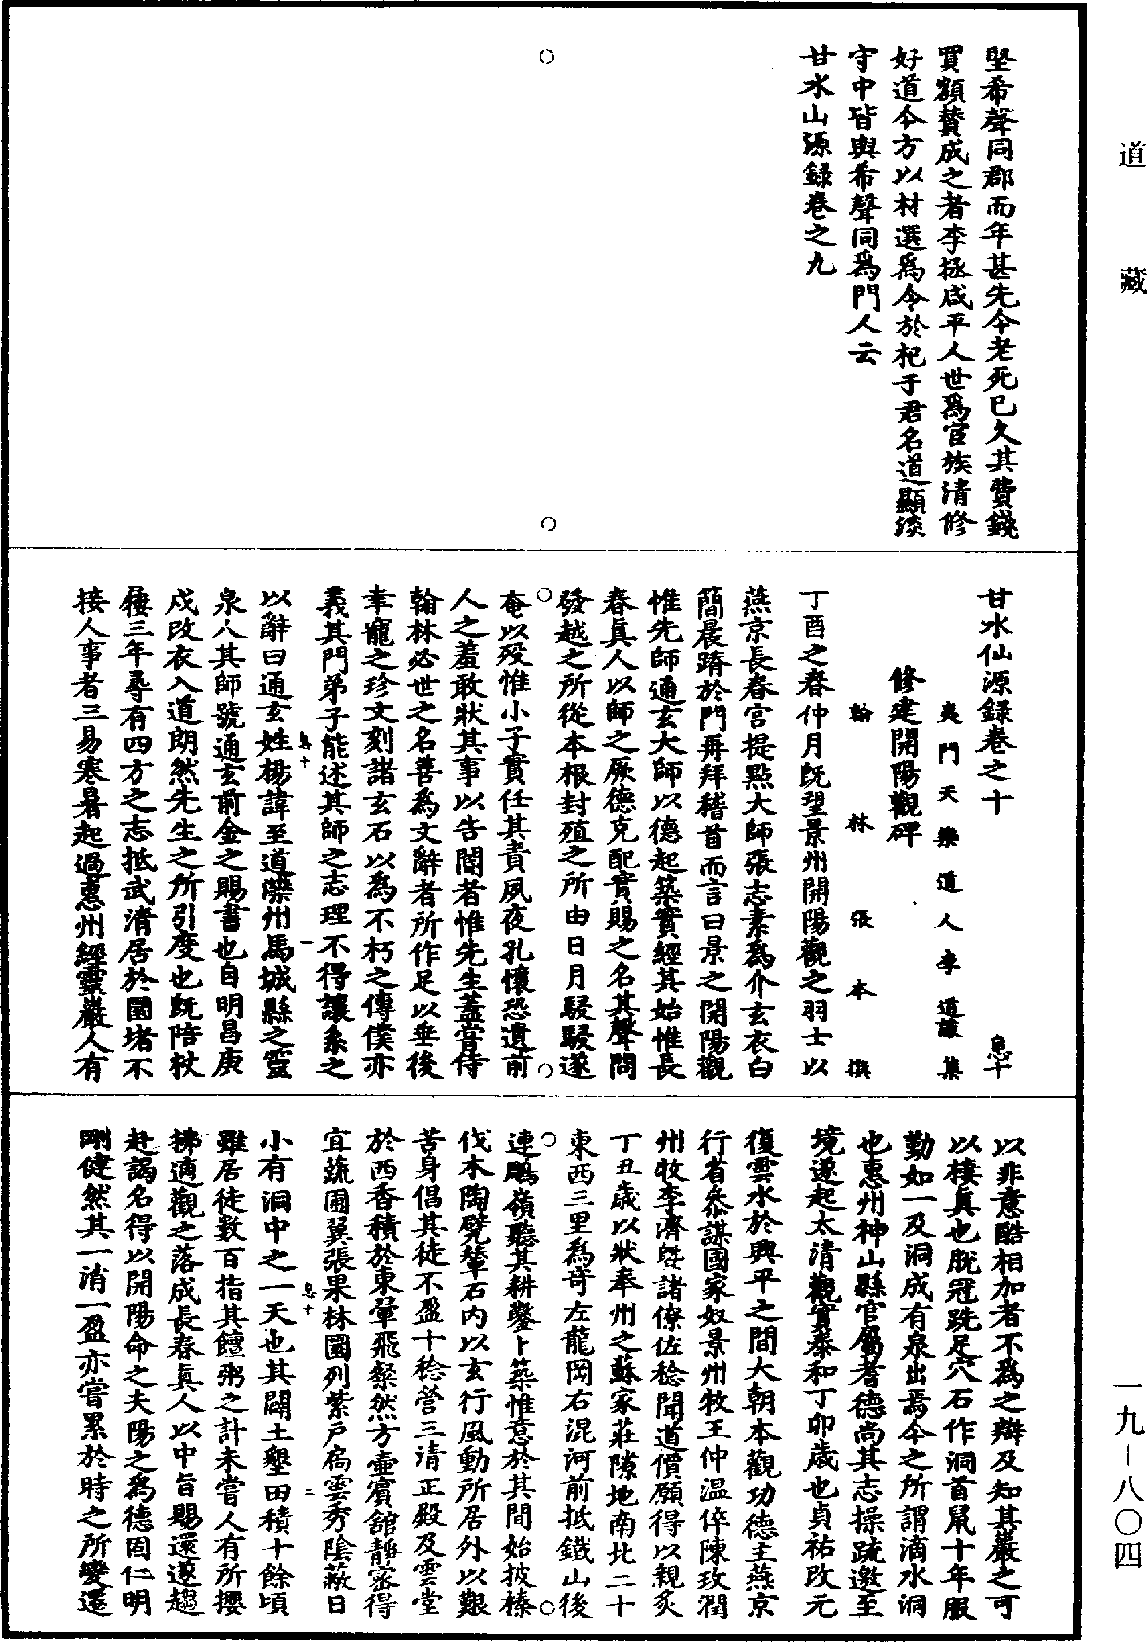 道藏
堅希聲同郡而年甚先今老死已久其費錢
買額贊成之者李拯咸平人世為官族清修
好道今方以材選為令於杞于君名道顯淡
守中皆與希聲同為門人云
甘水山源錄卷之九
甘水仙源錄卷之十 息十
夷門天樂道人李道謙集
修建開陽觀碑
翰林張本撰
丁酉之春仲月既望景州開陽觀之羽士以
燕京長春宮提點大師張志素為介玄衣白
簡晨躋於門再拜稽首而言曰景之開陽觀
惟先師通玄大師以德起築實經其始惟長
春真人以師之厥德克配實賜之名其聲問
發越之所從本根封殖之所由日月駸駸遂
奄以歿惟小子實任其責夙夜孔懷恐遺前
人之羞敢狀其事以告閽者惟先生蓋嘗侍
翰林必世之名善為文辭者所作足以垂後
幸寵之珍文刻諸玄石以為不朽之傳僕亦
義其門弟子能述其師之志理不得讓系之
息十 一
以辭曰通玄姓楊諱至道灤州馬城縣之靈
泉人其師號通玄前金之賜書也自明昌庚
戌改衣入道朗然先生之所引度也既陪杖
屨三年尋有四方之志抵武清居於圜堵不
接人事者三易寒暑起過惠州經靈巖人有
以非意酷相加者不為之辯及知其巖之可
以棲真也脫冠跣足穴石作洞首尾十年服
勤如一及洞成有泉出焉今之所謂滴水洞
也惠州神山縣官屬耆德尚其志操疏邀至
境遂起太清觀實泰和丁卯歲也貞祐改元
復雲水於興平之間大朝本觀功德主燕京
行省參謀國家奴景州牧王仲溫倅陳玫潤
州牧李濟暨諸僚佐稔聞道價願得以親炙
丁丑歲以狀奉州之蘇家莊隙地南北二十
東西三里為奇左龍岡右混河前抵鐵山後
連鵰嶺聽其耕鑿卜築惟意於其間始披榛
伐木陶甓輦石內以玄行風動所居外以艱
苦身倡其徒不盈十稔營三清正殿及雲堂
於西香積於東翬飛粲然方壺賓舘靜密得
宜蔬圃翼張果林圜列紫戶扃雲秀陰蔽日
息十 二
小有洞中之一天也其闢土墾田積十餘頃
雖居徒數百指其饘粥之計未嘗人有所攖
拂適觀之落成長春真人以中旨賜還遂趨
赴謁名得以開陽命之夫陽之為德固仁明
剛健然其一消一盈亦嘗累於時之所變還
一九—八〇四